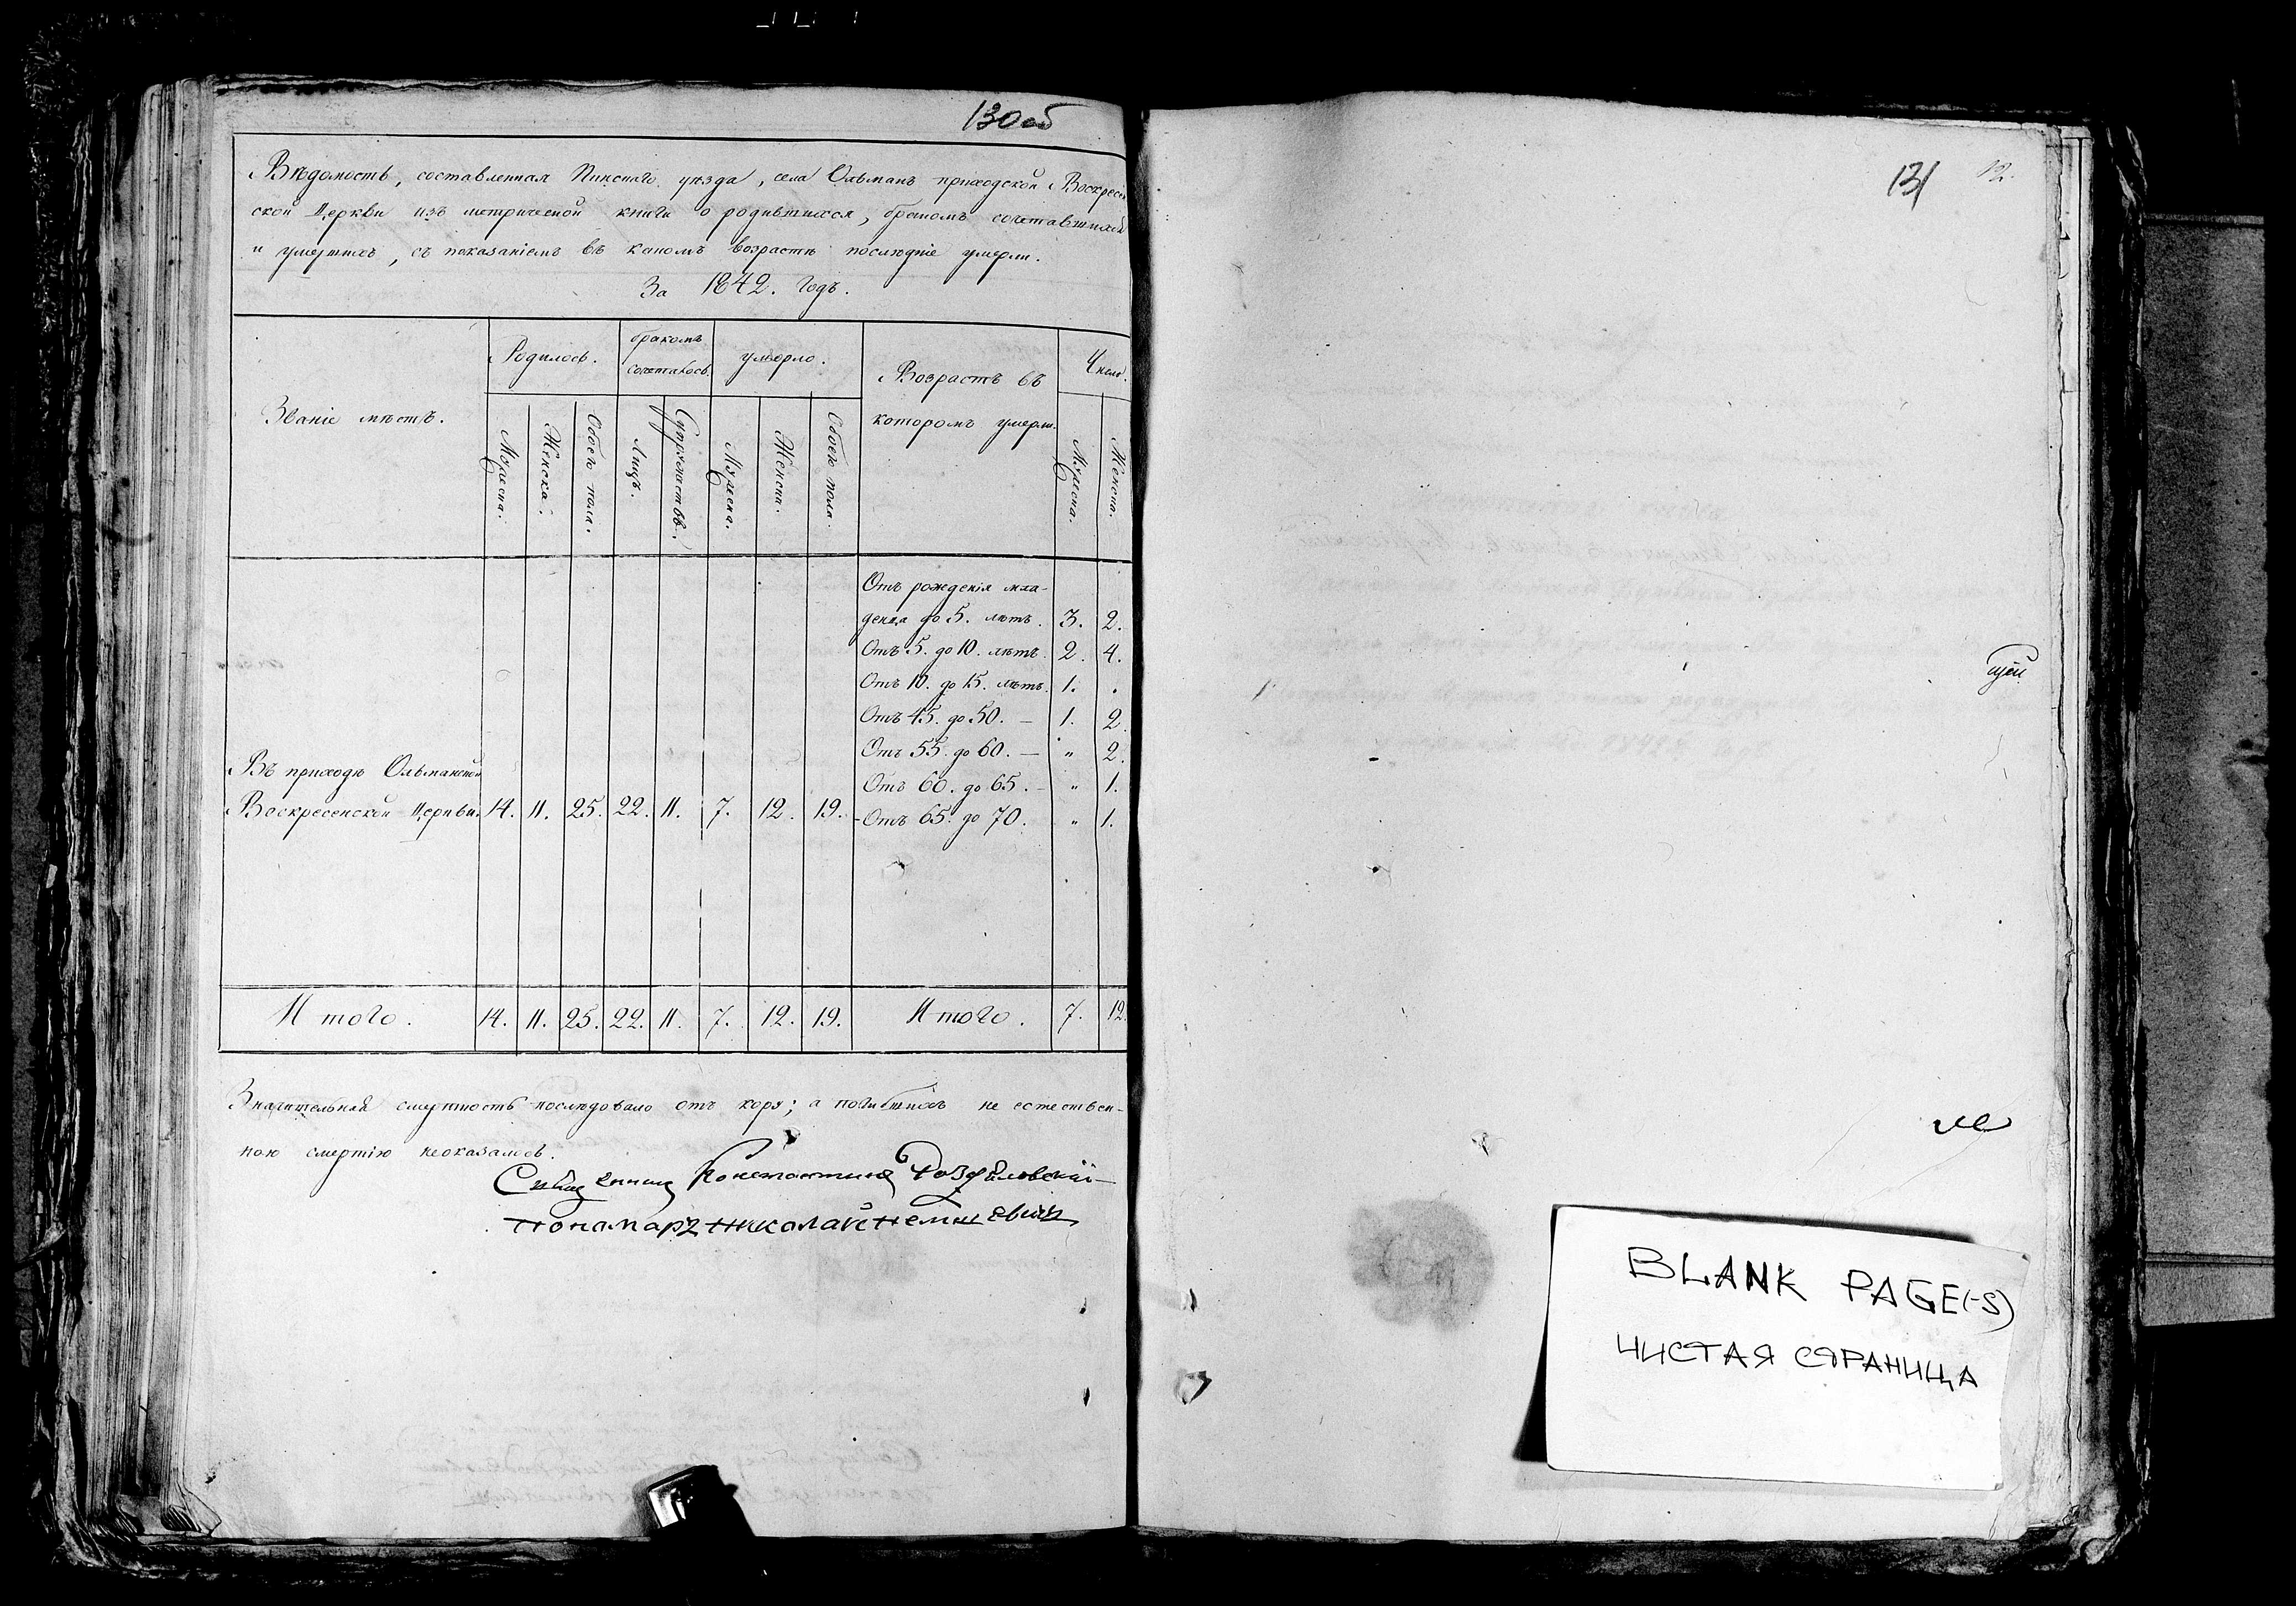 130об
Вѣдомость, составленная Пинскаго уѣзда, села Ольманъ приходской Воскресен
ской Церкви изъ метрической книги о родившихся, бракомъ сочетавшихся
и умершихъ, съ показаніемъ въ какомъ возрастѣ послѣдніе умерли.
За 1842. Годъ.
Званіе мѣстъ.
Родилось.
бракомъ
сочеталось.
умерло.
Возрастъ въ
которомъ умерли.
Число.
Мужеска.
Женска.
Обоего пола.
Лицъ.
Супружествъ.
Мужеска.
Женска.
Обоего пола.
Мужеска.
Женска.
Отъ рожденія мла-
денца до 5. лѣтъ. 3. 2.
Отъ 5. до 10. лѣтъ. 2. 4.
Отъ 10. до 15. лѣтъ. 1. .
Отъ 45. до 50. — 1. 2
Отъ 55. до 60. — " 2.
Отъ 60. до 65. — " 1.
Отъ 65. до 70. " 1.
Въ приходѣ Ольманской
Воскресенской Церкви. 14. 11. 25. 22. 11. 7. 12. 19.
Итого. 14. 11. 25. 22. 11. 7. 12. 19. Итого. 7. 12.
Значительная смертность послѣдовало отъ коря; а погибшихъ не естествен-
ною смертію неоказалось.
Священникъ Константинъ
Пономарь Николай Немшевичъ
131 12.
щей
BLANK PAGE(-S)
ЧИСТАЯ СТРАНИЦА